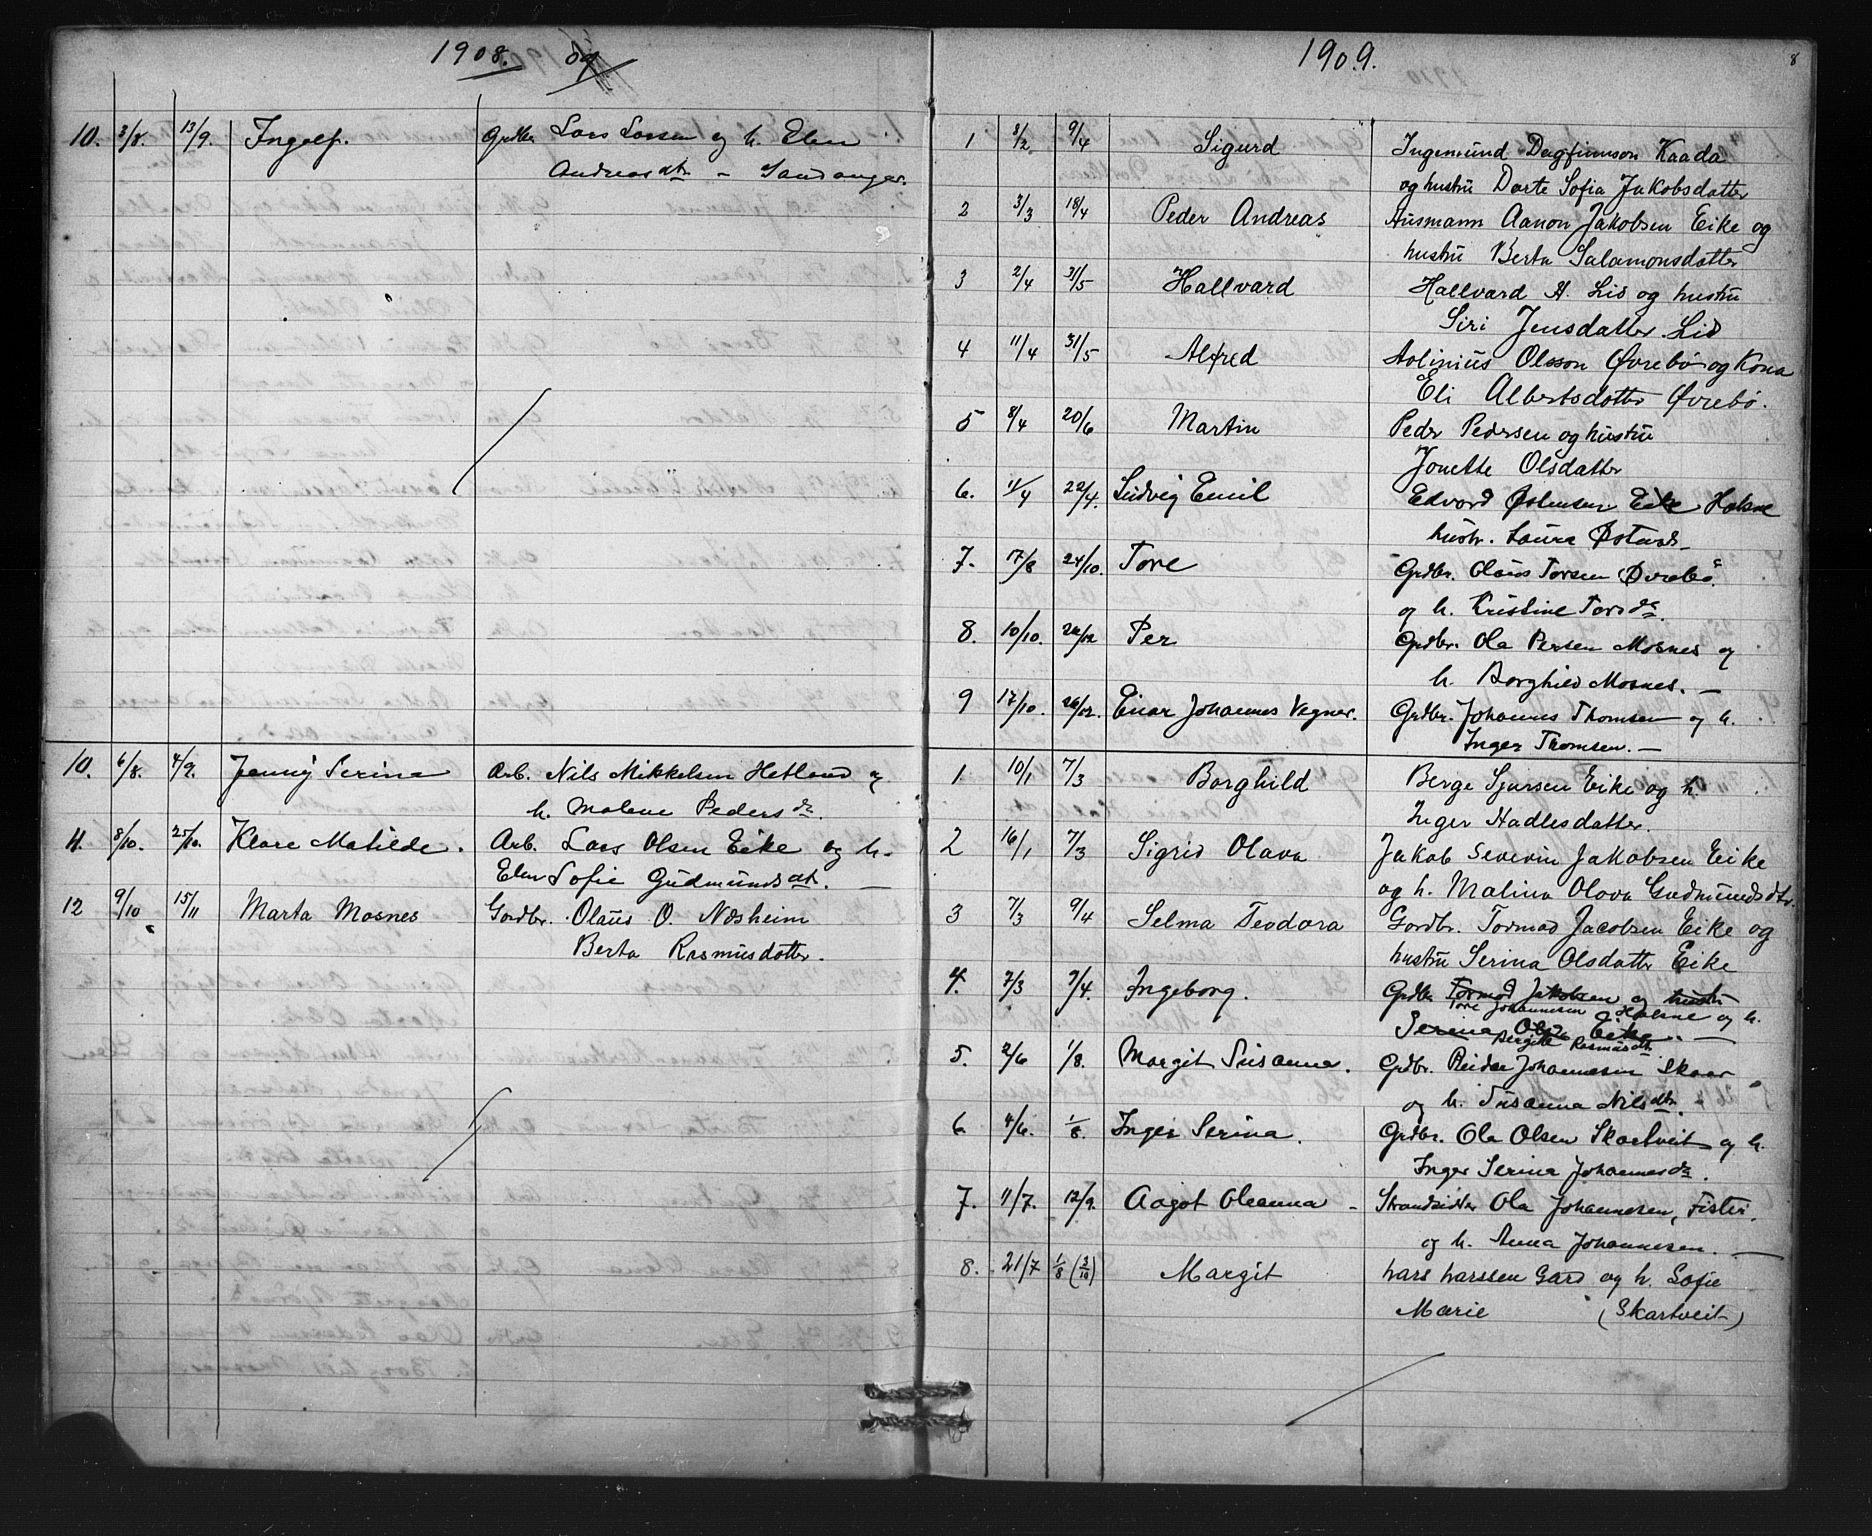 1908.
10. 3/8. 13/9. Ingolf. Grdbr. Lars Larsen og h. Elen
Andreasdtr. – Sandanger.
10. 6/8. 4/9. Jenny Serina Arb. Nils Mikkelsen Hetland og
h. Malene Pedersdr.
11. 8/10. 25/10. Klare Matilde. Arb. Lars Olsen Eike og h.
Elen Sofie Gudmundsdtr. —
12 9/10 15/11 Marta Mosnes Gardbr. Olaus O. Næsheim
Berta Rasmusdatter.
1909.
8
1 8/2 9/4 Sigurd Ingemund Dagfinnson Kaada
og hustru Dorte Sofia Jakobsdatter
2 3/3 18/4 Peder Andreas Husmann Aanon Jakobsen Eike og
hustru Berta Salamonsdatter
3 2/4 31/5 Hallvard Hallvard H. Lid og hustru
Siri Jensdatter Lid
4 11/4 31/5 Alfred Olsson Øvrebø og Kona
Eli Albertsdotter Øvrebø.
5 8/4 20/6 Martin Peder Pedersen og hustru
Jonette Olsdatter
6. 11/4 22/4. Ludvig Emil Edvard Østensen Eike Halsne
hustr. Laura
7. 17/8 24/10. Tore Grdbr. Olaus Torsen Øvrebø.
og h. Kristine Torsdr.
8. 10/10. 26/12 Per Grdbr. Ola Persen Mosnes og
h. Borghild Mosnes. —
9 17/10. 26/12. Einar Johannes Vegner. Grdbr. Johannes Thomsen og h.
Inger Thomsen. —
1 10/1 7/3 Borghild Berge Sjursen Eike og h.
Inger Hadlesdatter.
2 16/1 7/3 Sigrid Olava Jakob Severin Jakobsen Eike
og h. Malina Olava Gudmundsdtr.
3 7/3 9/4 Selma Teodora Gardbr. Tormod Jacobsen Eike og
hustru Serina Olsdatter Eike
4. 7/3 9/4. Ingeborg. Grdbr. Tormod Jakobsen og hustr
Tore Johannesen Halsne og h.
Serina Eike. —
Bergitte Rasmusdtr.
5. 2/6 1/8. Margit Susanna. Grdbr. Reidar Johannesen Skaar
og h. Susanna Nilsdtr.
6. 4/6. 1/8. Inger Serina. Grdbr. Ola Olsen Skartveit og h.
Inger Serina Johannesdr.
7. 11/7. 12/9. Aagot Oleanna – Strandsidder Ola Johannesen, Fister.
og h. Anna Johannesen. —
8. 21/7 1/8 (3/10) Margit Lars Larssen Gard og h. Sofie
Marie (Skartveit)